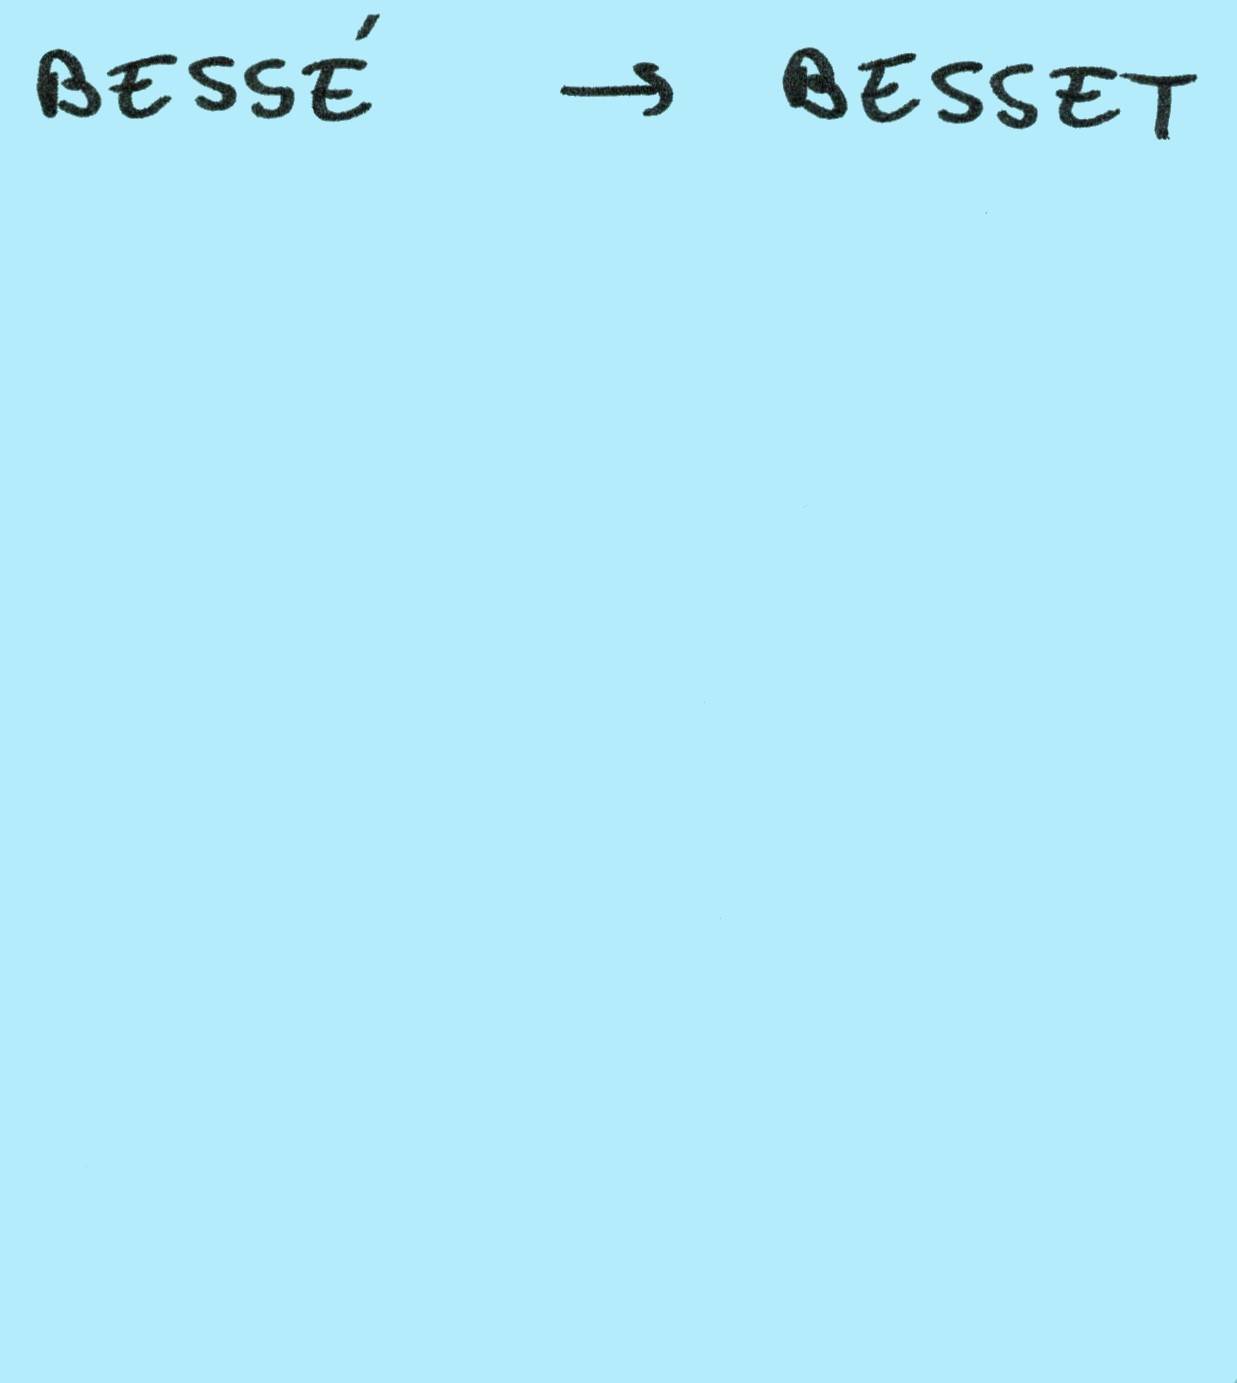 BESSÉ → BESSET